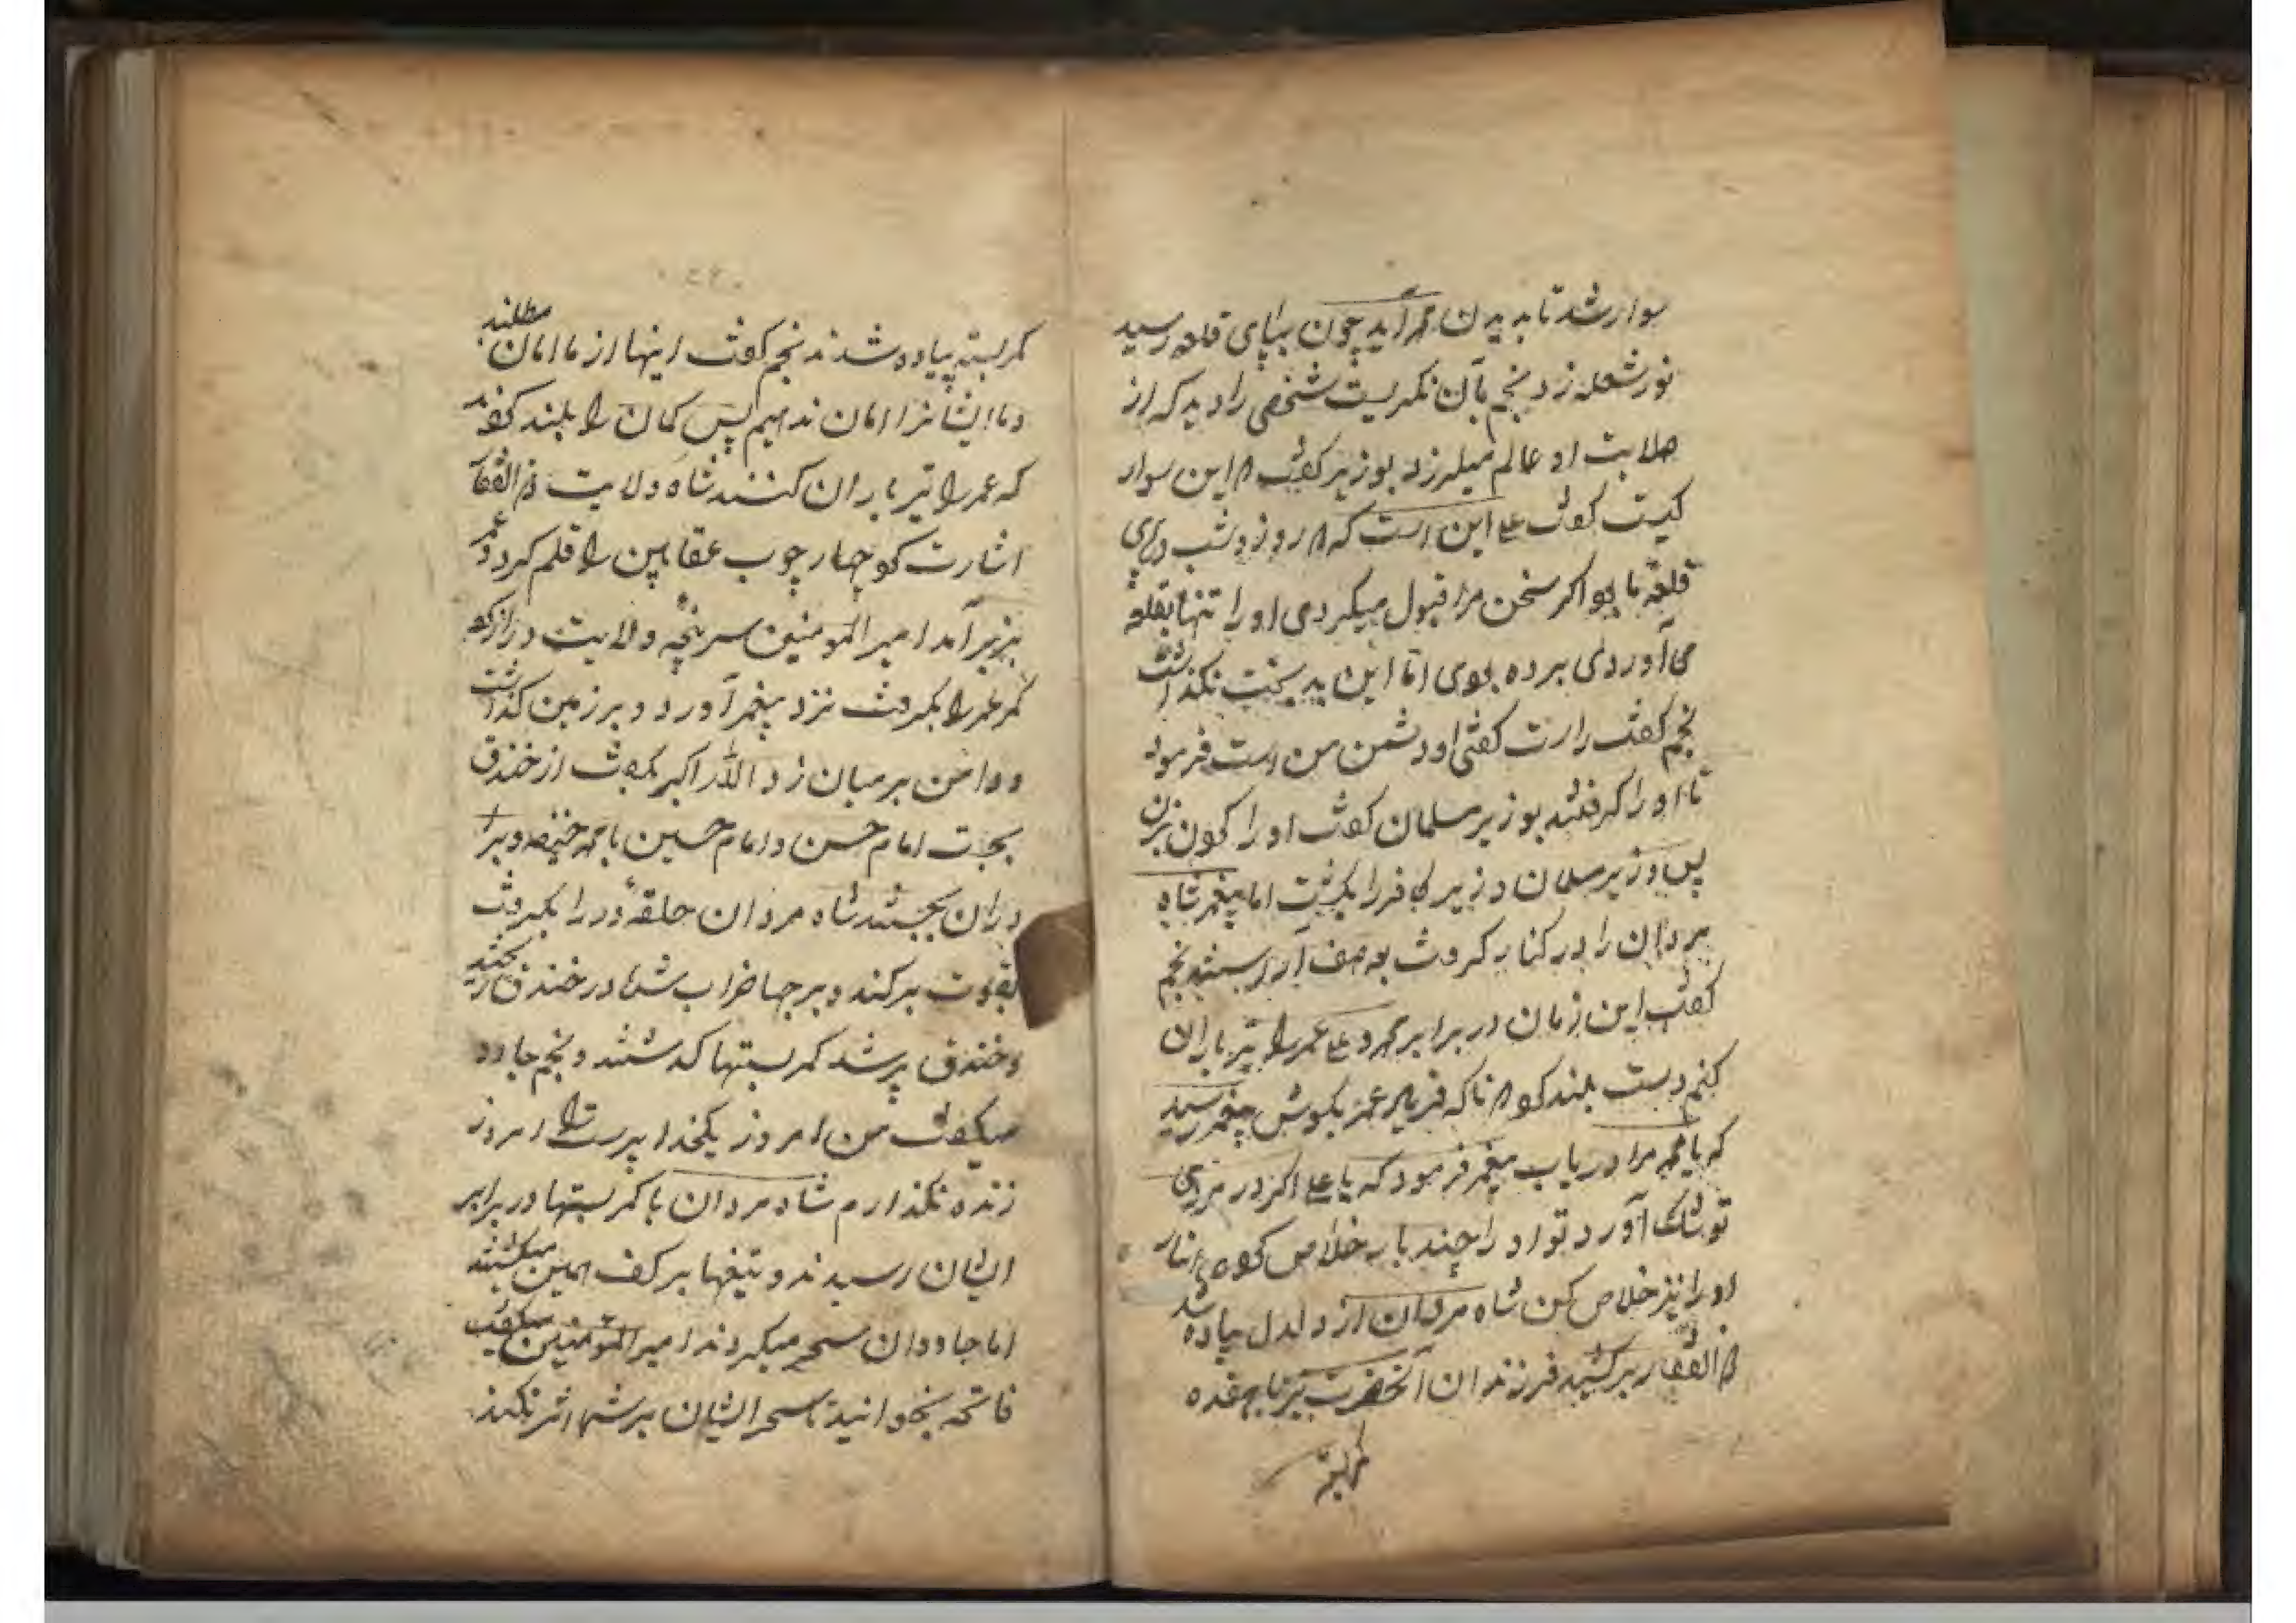 سوار شد تا بدیدن محمد آید چون بپای قلعه رسید
نور شعله زد نجم بآن نکریست شخصی را دید که از
صلابت او عالم میلرزد بوزیر کفت این سوار
کیست کفت علی این است که روز و شب در پای
قلعه ما بو اکر سخن مرا قبول میکردی او را تنها بقلعه
می آوردی برده بودی اما این بدبخت نکذاشت
نجم کفت راست کفتی او دشمن من است فرمود
تا او را کرفتند بوزیر مسلمان کفت او را کردن بزن
پس وزیر مسلمان وزیر کافر را بکشت اما پیغمبر شاه
مردان را در کنار کرفت صف آراستند نجم
کفت این زمان در برابر محمد و علی عمر را تیرباران
کنم دست بلند کو ناکه فریاد عمر بکوش پیغمبر رسید
که یا محمد مرا دریاب پیغمبر فرمود که یا علی اکر در مردی
تو شک آورد تو او را چند بار خلاص کو این بار
او را نیز خلاص کن شاه مردان از دلدل پیاده شد
ذوالفقار برکشید فرزندان آنحضرت نیز با هفده
کمربسته
کمربسته پیاده شدند نجم کفت اینها از ما امان مطلبند
و ما ایشانرا امان ندهیم پس کمان را بلند کفتد
که عمر را تیرباران کنند شاه ولایت ذوالفقار
اشارت کو چهار چوب عقابین را قلم کرد و عمر
بزیر آمد امیرالمومنین سرپنجه ولایت دراز کو
کمر عمر را بکرفت نزد پیغمبر آورد و بر زمین کذاشت
و دامن بر میان زد الله اکبر بکفت از خندق
بجست امام حسن و امام حسین با محمد حنیفه و برا
دران بجستند شاه مردان حلقه در را بکرفت
بقوت برکند و برجها خراب شد در خندق ریختند
و خندق پر شد کمربستها کذشتند و نجم جادو
میکفت من امروز یکخدا پرست را امروز
زنده نکذارم شاه مردان با کمربستها در برابر
ایشان رسیدند و تیغها بر کف میکشتند
اما جاودان سحر میکردند امیرالمؤمنین میکفت
فاتحه بخوانید تا سحر ایشان بر شما اثر نکند